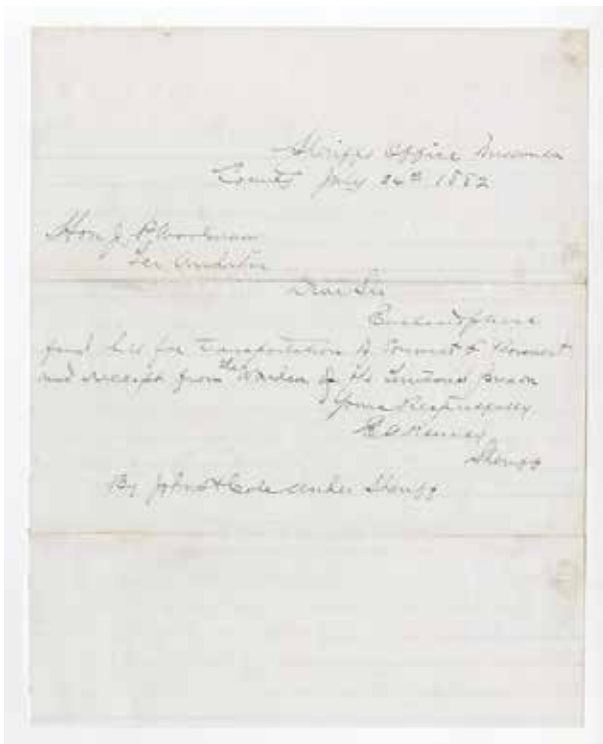 Sheriffs Office Missoula
County July 24th 1882
Hon J. P. Woolman
Ter Auditor
Dear Sir
Enclosed please
find bill for Transportation of Convict
and Receipt from the Warden of the Prison
Yours Respectfully
Sheriff
By John Cole under Sheriff